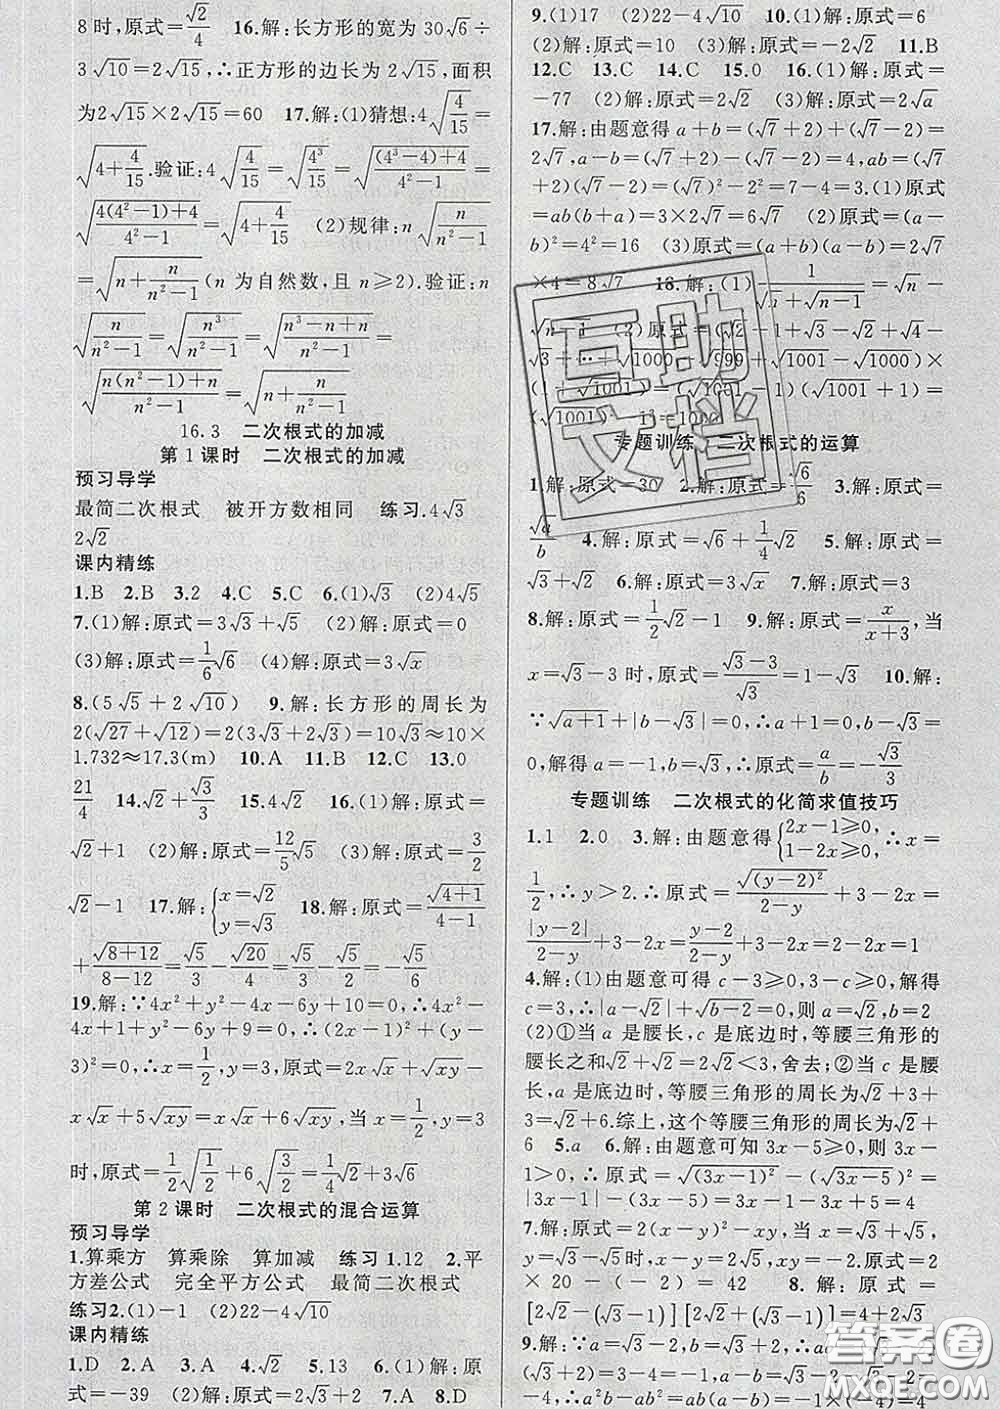 8时,原式=√2/4　16.解:长方形的宽为30√6÷
3√10=2√15,∴正方形的边长为2√15,面积
为2√15×2√15=60　17.解:(1)猜想:4√(4/15)=
√(4+4/15).验证:4√(4/15)=√(4³/15)=√(((4³-4)+4)/(4²-1))=
√((4(4²-1)+4)/(4²-1))=√(4+4/15)　(2)规律:n√(n/(n²-1))
=√(n+n/(n²-1))(n为自然数,且n≥2).验证:n
√(n/(n²-1))=√(n³/(n²-1))=√((n³-n+n)/(n²-1))
=√((n(n²-1)+n)/(n²-1))=√(n+n/(n²-1))
16.3　二次根式的加减
第1课时　二次根式的加减
预习导学
最简二次根式　被开方数相同　练习.4√3
2√2
课内精练
1.B　2.B　3.2　4.C　5.C　6.(1)√3　(2)4√5
7.(1)解:原式=3√3+√5　(2)解:原式=0
(3)解:原式=1/6√6　(4)解:原式=3√x
8.(5√5+2√10)　9.解:长方形的周长为
2(√27+√12)=2(3√3+2√3)=10√3≈10×
1.732≈17.3(m)　10.A　11.B　12.C　13.0
21/4　14.√2+√3/3　15.4√2　16.(1)解:原式=
√2+1　(2)解:原式=12/5√5　(3)解:原式=3/2
√2-1　17.解:{x=√2 y=√3　18.解:原式=√(4+1)/(4-1)
+√(8+12)/(8-12)=√5/3-√20/4=√5/3-√5/2=-√5/6
19.解:∵4x²+y²-4x-6y+10=0,∴4x²-
4x+1+y²-6y+9=0,∴(2x-1)²+(y-
3)²=0,∴x=1/2,y=3,原式=2x√x+√xy-
x√x+5√xy=x√x+6√xy,当x=1/2,y=3
时,原式=1/2√(1/2)+6√(3/2)=1/4√2+3√6
第2课时　二次根式的混合运算
预习导学
1.算乘方　算乘除　算加减　练习1.12　2.平
方差公式　完全平方公式　最简二次根式
练习2.(1)-1　(2)22-4√10
课内精练
1.D　2.A　3.A　4.√2　5.13　6.(1)解:原
式=-39　(2)解:原式=2√3+2　7.A　8.D
9.(1)17　(2)22-4√10　10.(1)解:原式=6
(2)解:原式=0　(3)解:原式=-2√2　11.B
12.C　13.C　14.C　15.0　16.(1)解:原式=
-77　(2)解:原式=2√2　(3)解:原式=2√a
17.解:由题意得a+b=(√7+2)+(√7-2)=
2√7,a-b=(√7+2)-(√7-2)=4,ab=(√7
+2)(√7-2)=(√7)²-2²=7-4=3.(1)原式
=ab(b+a)=3×2√7=6√7　(2)原式=(a-
b)²=4²=16　(3)原式=(a+b)(a-b)=2√7
×4=8√7　18.解:(1)1/(√n+√(n-1))=√n-
√(n-1)　(2)原式=(√2-1+√3-√2+√4-
√3+…+√1000-√999+√1001-√1000)×
(√1001+1)=(√1001-1)(√1001+1)=
(√1001)²-1²=1000
专题训练　二次根式的运算
1.解:原式=30　2.解:原式=√6/6　3.解:原式=
√a/b　4.解:原式=√6+1/4√2　5.解:原式=
√3+√2　6.解:原式=3√x　7.解:原式=3
8.解:原式=1/2√2-1　9.解:原式=x/(x+3),当
x=√3-3时,原式=(√3-3)/√3=1-√3　10.解:
∵√(a+1)+|b-√3|=0,∴a+1=0,b-√3=
0,解得a=-1,b=√3,∴原式=a/b=-√3/3
专题训练　二次根式的化简求值技巧
1.1　2.0　3.解:由题意得{2x-1≥0, 1-2x≥0,∴x=
1/2,∴y>2.∴原式=√((y-2)²)/(2-y)+3-2x=
|y-2|/(2-y)+3-2x=(y-2)/(2-y)+3-2x=2-2x=1
4.解:(1)由题意可得c-3≥0,3-c≥0,解得
c=3,∴|a-√2|+√(b-2)=0,则a=√2,b=2
(2)①当a是腰长,c是底边时,等腰三角形的
腰长之和√2+√2=2√2<3,舍去;②当c是腰
长,a是底边时,等腰三角形的周长为√2+3+
3=√2+6.综上,这个等腰三角形的周长为√2+
6　5.a　6.解:由题意可知3x-5≥0,则
∴原式=√((3x-1)²)-√((3x-5)²)=
|3x-1|-|3x-5|=3x-1-3x+5=4
7.解:原式=2(x-y)²-xy,当x=√3+√5,
y=√3-√5时,x-y=2√5,xy=-2.原式=2
×20-(-2)=42　8.解:原式=
[2√2-(√3-1)][2√2+(√3-1)]=4+2√3
9.解:∵a=√3-2,b=
(√3+2)=-1,a-b=√3-2-
-4,∴a²b-ab²=ab(a-b)=(-1)×(-4)=4
互助
文档
答案圈
MXQE.COM